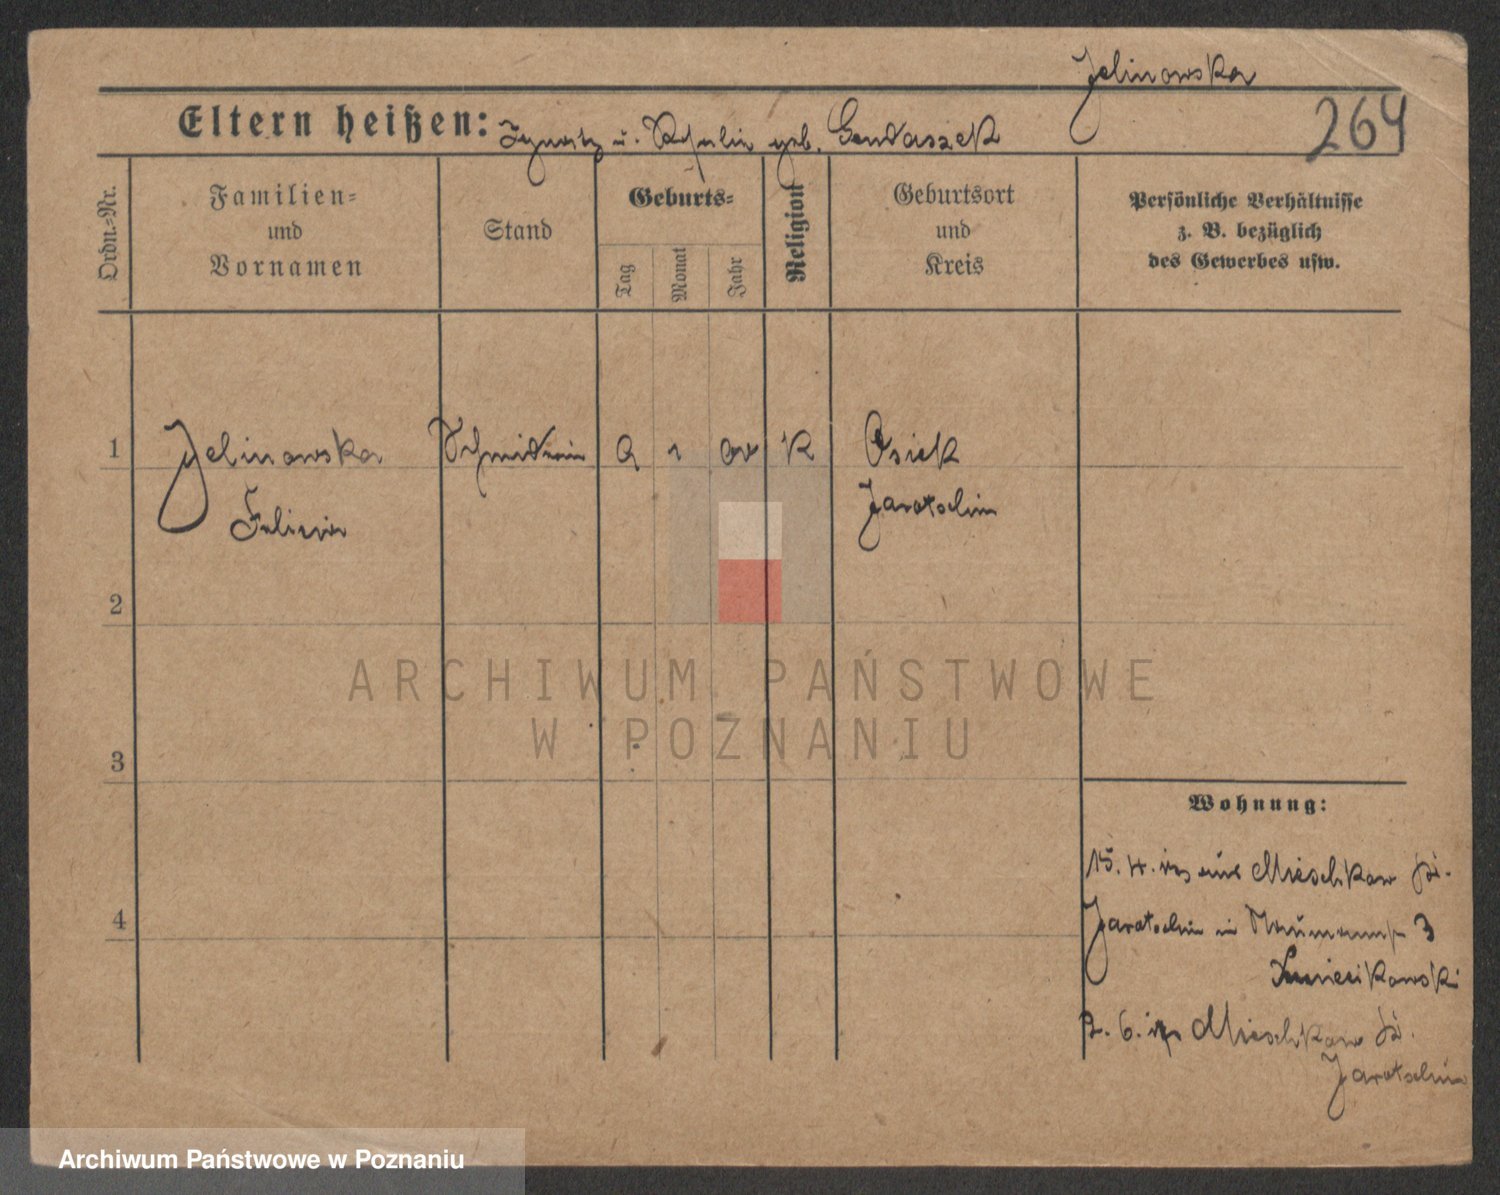 Jelinowska
264
Eltern heißen: Ignatz u. geb.
Ordn.-Nr.
Familien-
und
Vornamen
Stand
Geburts-
Tag
Monat
Jahr
Religion
Geburtsort
und
Kreis
Persönliche Verhältnisse
z. B. bezüglich
des Gewerbes usw.
1 Jelinowska K Osiek
Felicia Jarotschin
2
ARCHIWUM PAŃSTWOWE
W POZNANIU
3
Wohnung:
15. 4. aus Mieschkow
4
Jarotschin in 3
2. 6. Mieschkow
Jarotschin
Archiwum Państwowe w Poznaniu